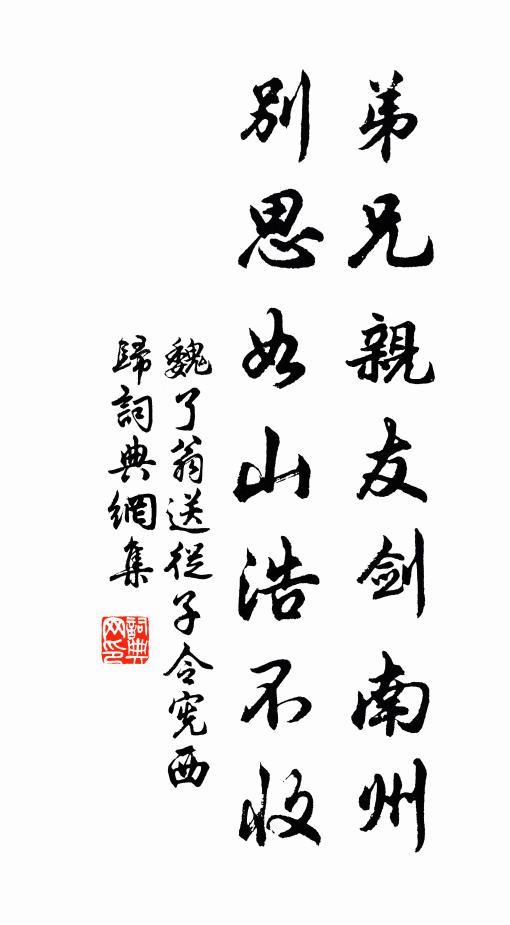 弟兄親友劍南州
別思如山浩不收
魏了翁送從子令憲西
歸詞典網集
詞典網印